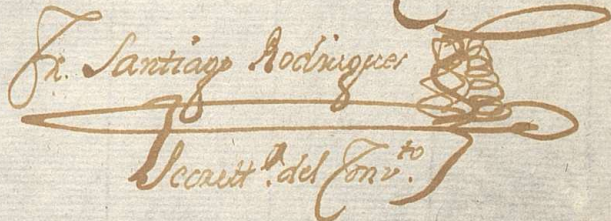 Fr. Santiago Rodriguez
Secrett.º del Conv.to